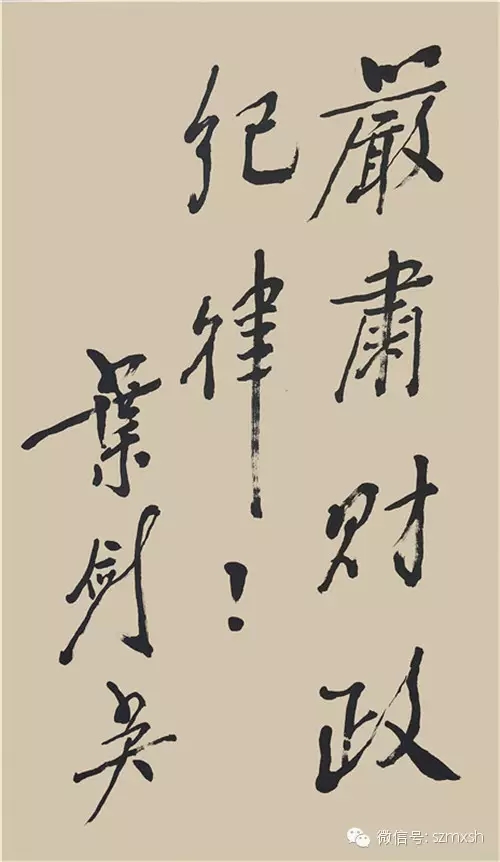 嚴肅财政
纪律！
葉剑英
微信号: szmxsh